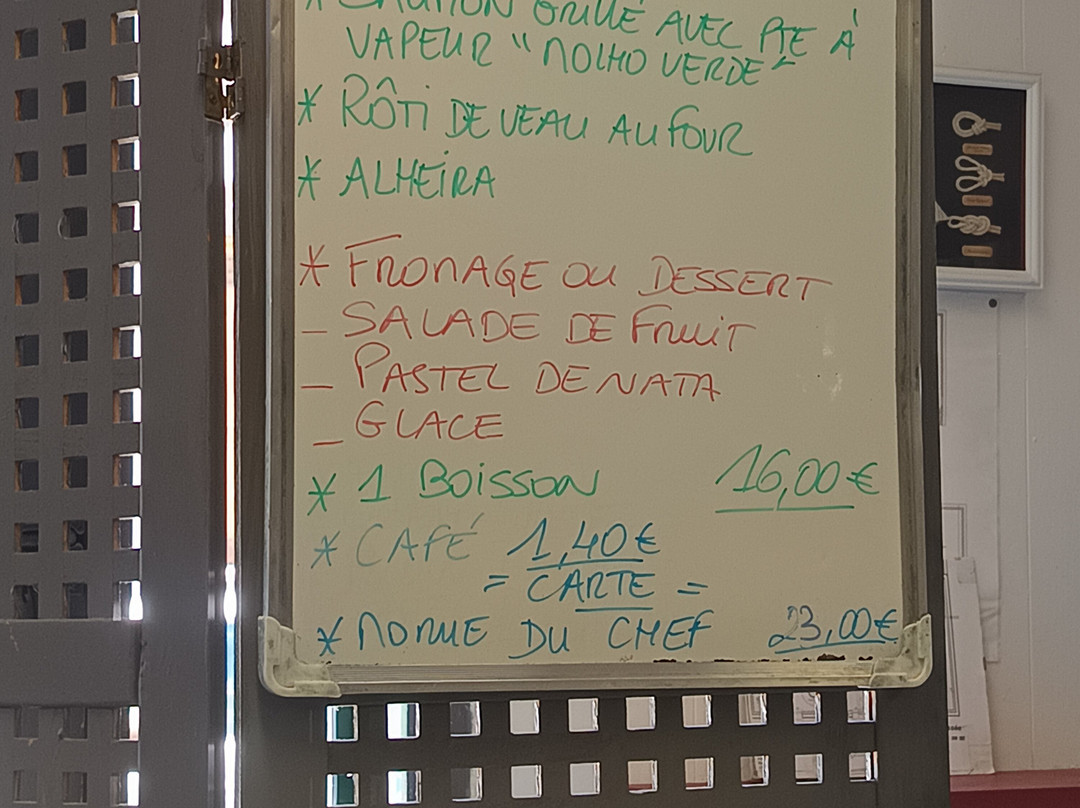 * SAUMON GRILLÉ AVEC PTE À
VAPEUR "MOLHO VERDE"
* RÔTI DE VEAU AU FOUR
* ALHEIRA
* FROMAGE OU DESSERT
- SALADE DE FRUIT
- PASTEL DE NATA
- GLACE
* 1 BOISSON 16,00€
* CAFÉ 1,40€
= CARTE =
* MORUE DU CHEF 23,00€